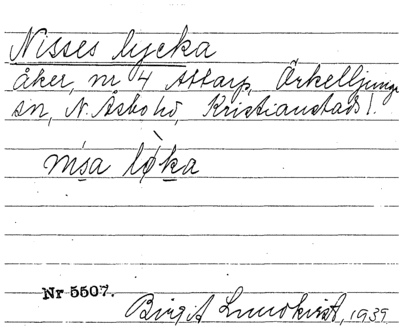 Nisses lycka
åker, nr 4 Attarp, Örkelljunga
sn, N. Åsbo hd, Kristianstads l.
mı́sa lø̀ka
Nr 5507.
Birgit Lundkvist, 1939